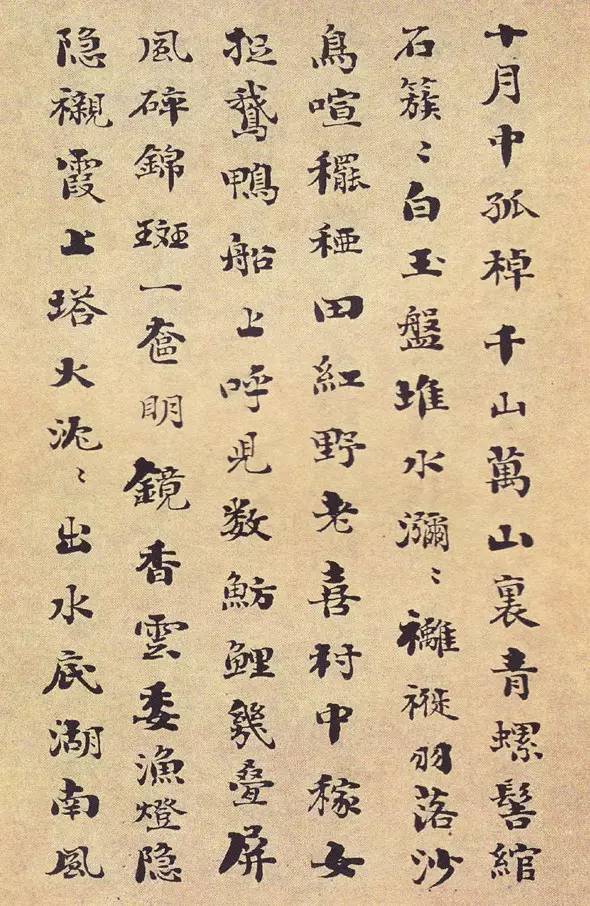 十月中孤棹千山萬山裏青螺髻綰
石簇〻白玉盤堆水瀰〻褷羽落沙
鳥喧䆉稏田紅野老喜村中稼女
捉鵝鴨船上呼兒数魴鯉幾疊屏
風碎錦斑一奩明鏡香雲委漁燈隐
隐襯霞上塔火沉〻出水底湖南風